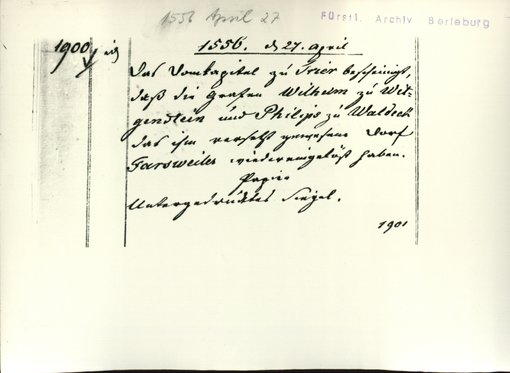 1556 April 27
Fürstl. Archiv Berleburg
1900
1556. d 27. April
Das Domkapitel zu Trier bescheinigt,
daß die Grafen Wilhelm zu Wit-
gendstein und Philips zu Waldeck
das ihm versetzt gewesene Dorf
Farsweiler wiedereingelößt haben.
Papier
Untergedrucktes Siegel.
1901